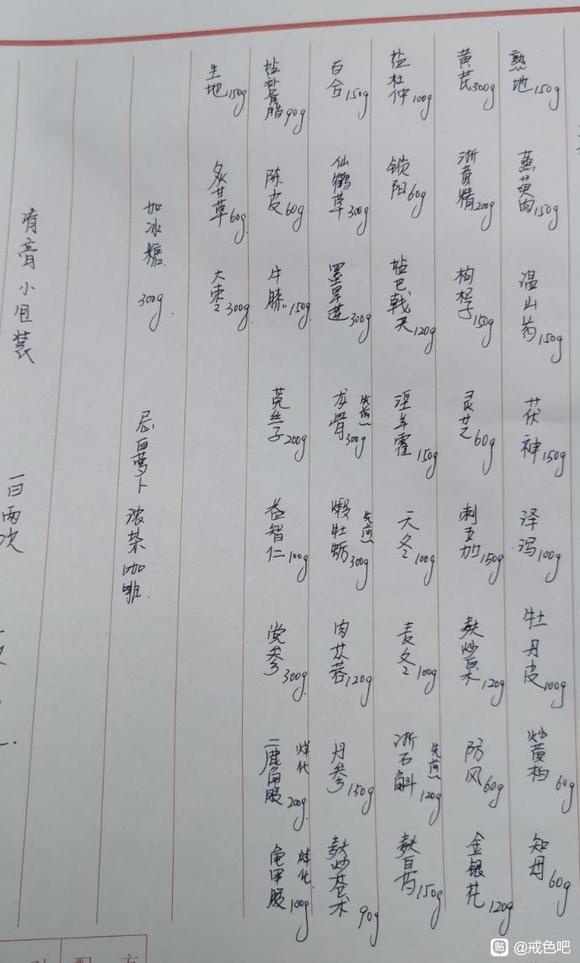 熟地150g
蒸萸肉150g
温山药150g
茯神150g
泽泻100g
牡丹皮100g
炒黄柏60g
知母60g
黄芪300g
浙黄精200g
枸杞子150g
灵芝60g
刺五加150g
麸炒白术120g
防风60g
金银花120g
盐杜仲100g
锁阳60g
盐巴戟天120g
淫羊霍150g
天冬100g
麦冬100g
浙石斛 先煎 120g
麸白芍150g
百合150g
仙鹤草300g
墨旱莲300g
龙骨 先煎 300g
煅牡蛎 先煎 300g
肉苁蓉120g
丹参150g
麸炒苍术90g
盐补骨脂90g
陈皮60g
牛膝150g
菟丝子200g
益智仁100g
党参300g
二鹿角胶 烊化 200g
龟甲胶 烊化 100g
生地150g
炙甘草60g
大枣300g
加冰糖 300g
忌白萝卜 浓茶 咖啡.
清膏小包装
一日两次
配方
@戒色吧